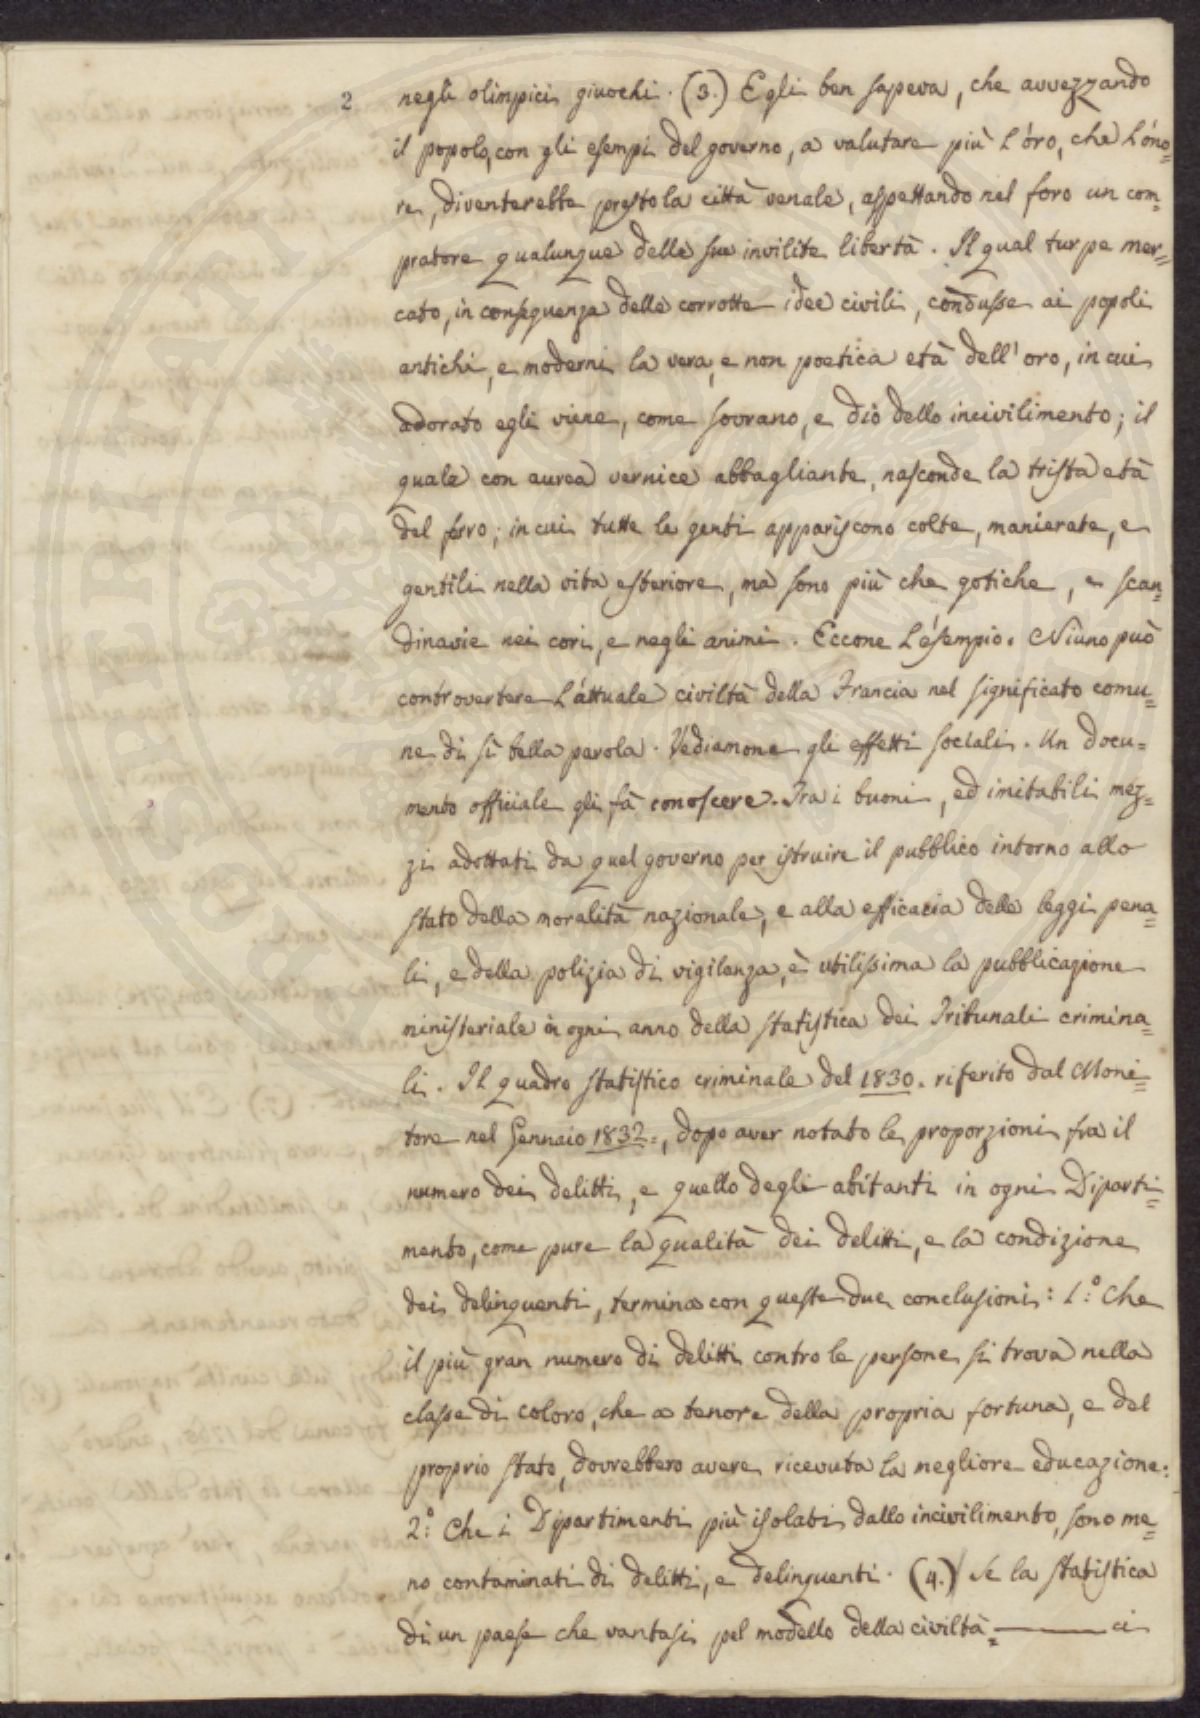 2
negli olimpici giuochi. (3.) Egli ben sapeva, che avvezzando
il popolo, con gli esempi del governo, a valutare più l'oro, che l'ono=
re, diventerebbe presto la città venale, aspettando nel foro un com=
pratore qualunque delle sue invilite libertà. Il qual turpe mer=
cato, in conseguenza delle corrotte idee civili, condusse ai popoli
antichi, e moderni la vera, e non poetica età dell'oro, in cui
adorato egli viene, come sovrano, e dio dello incivilimento; il
quale con aurea vernice abbagliante, nasconde la trista età
del ferro; in cui tutte le genti appariscono colte, manierate, e
gentili nella vita esteriore, ma sono più che gotiche, e scan=
dinavie nei cori, e negli animi. Eccone l'esempio. Niuno può
controvertere l'attuale civiltà della Francia nel significato comu=
ne di sì bella parola. Vediamone gli effetti sociali. Un docu=
mento officiale gli fà conoscere. Tra i buoni, ed imitabili mez=
zi adottati da quel governo per istruire il pubblico intorno allo
stato della moralità nazionale, e alla efficacia delle leggi pena=
li, e della polizia di vigilanza, è utilissima la pubblicazione
ministeriale in ogni anno della statistica dei Tribunali crimina=
li. Il quadro statistico criminale del 1830. riferito dal Moni=
tore nel Gennaio 1832=, dopo aver notato le proporzioni fra il
numero dei delitti, e quello degli abitanti in ogni Diparti=
mento, come pure la qualità dei delitti, e la condizione
dei delinquenti, termina con queste due conclusioni: 1.° Che
il più gran numero di delitti contro le persone si trova nella
classe di coloro, che a tenore della propria fortuna, e del
proprio stato, dovrebbero avere ricevuta la megliore educazione:
2.° Che i Dipartimenti più isolati dallo incivilimento, sono me=
no contaminati di delitti, e delinquenti. (4.) Se la statistica
di un paese che vantasi pel modello della civiltà= ci